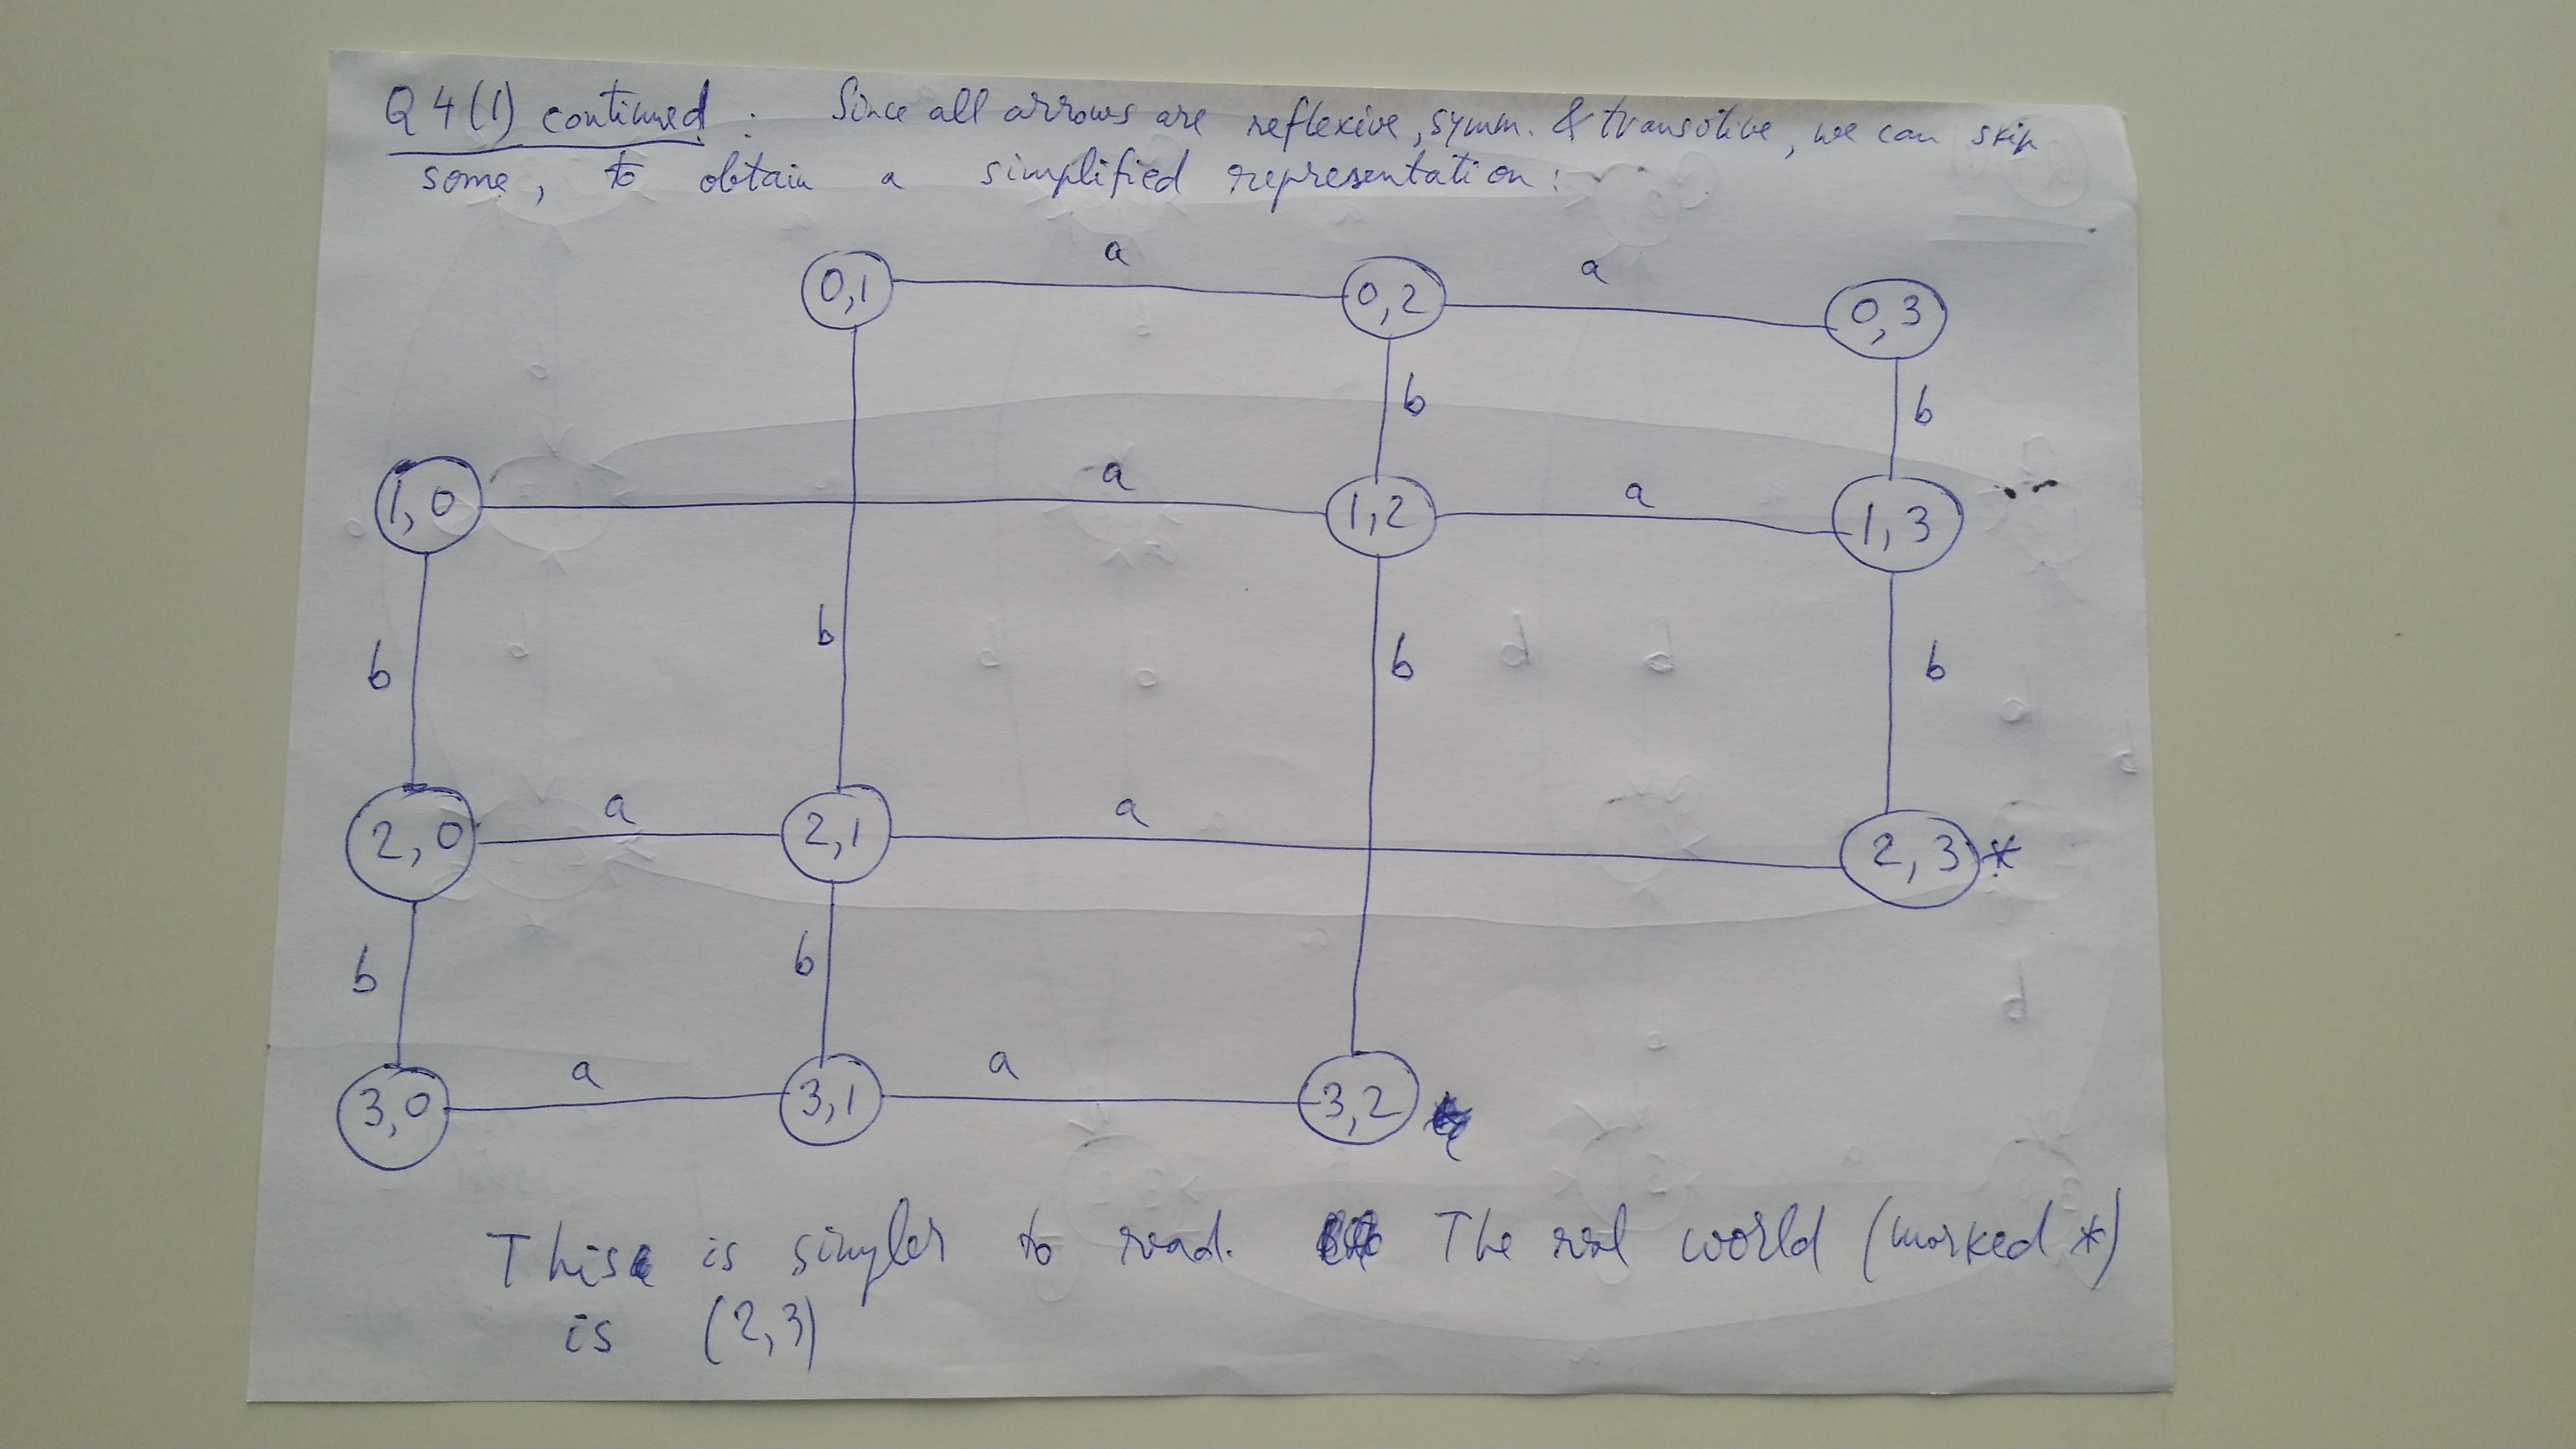 Q4(1) continued : Since all arrows are reflexive, symm. & transitive, we can skip
some, to obtain a simplified representation:
a
a
0,1 0,2 0,3
b b
a a
1,0 1,2 1,3
b b b b
a a
2,0 2,1 2,3 *
b b
a a
3,0 3,1 3,2
This is simpler to read. The real world (marked *)
is (2,3)